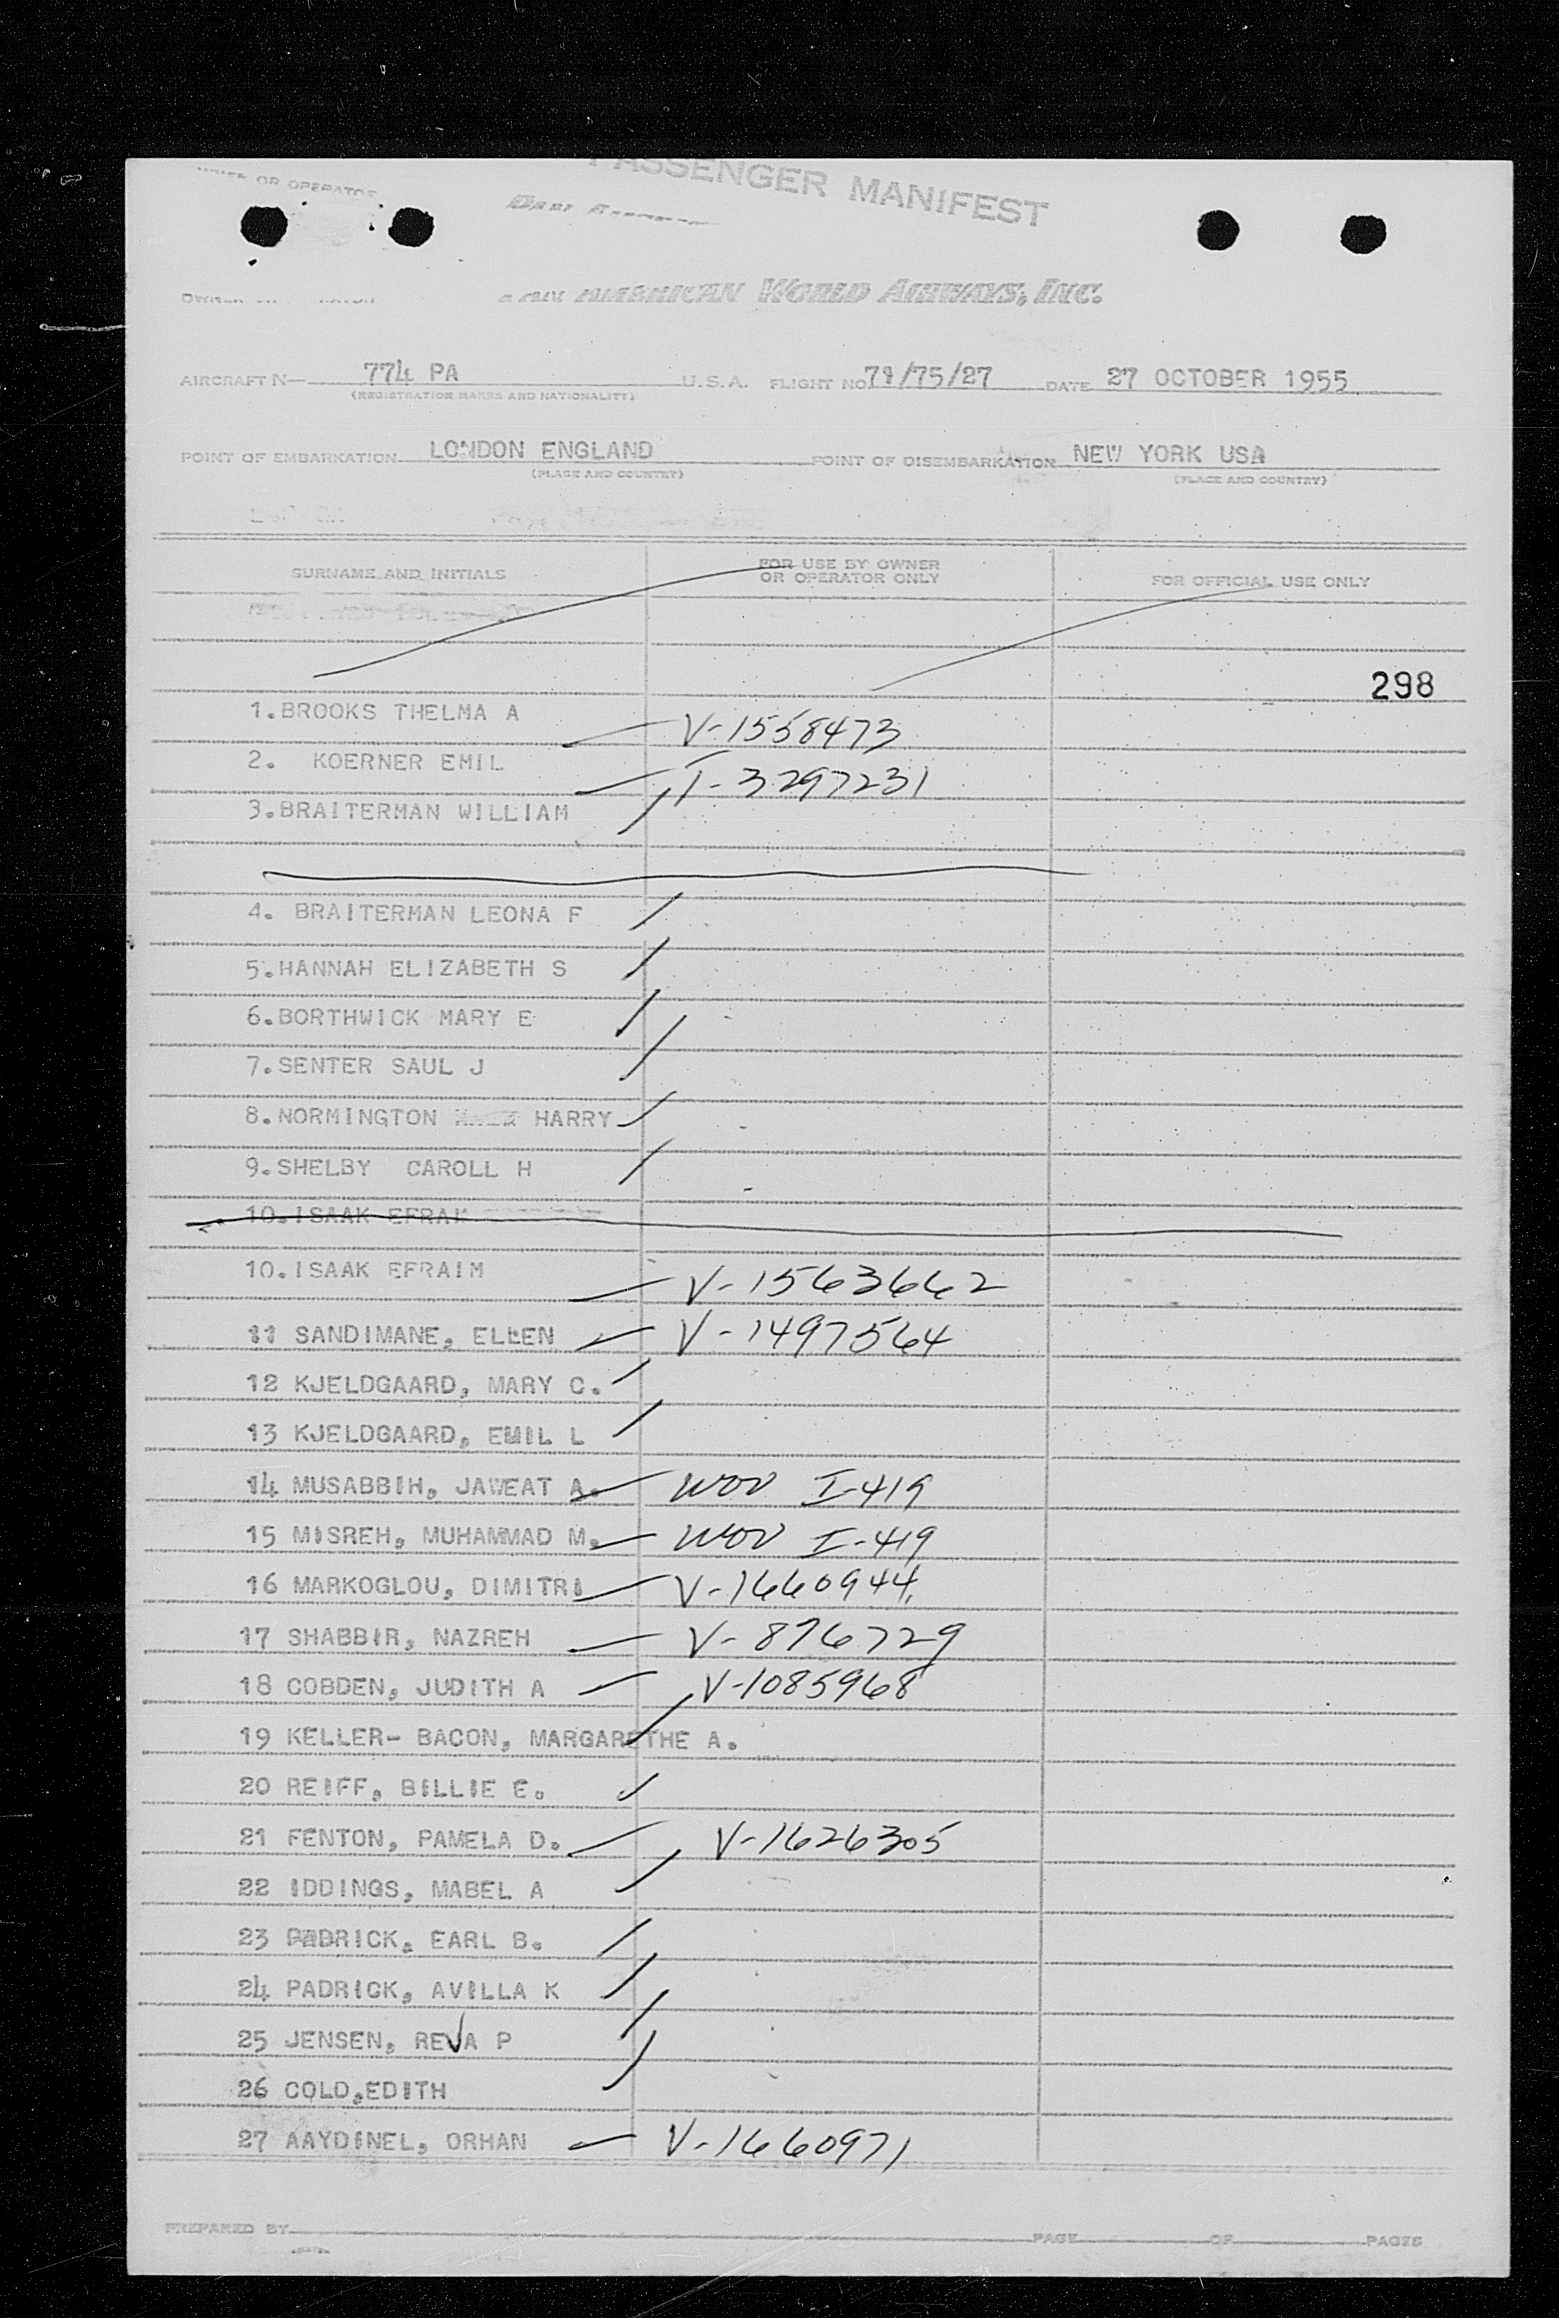 PASSENGER MANIFEST
OR OPERATOR
AMERICAN WORLD AIRWAYS, INC.
AIRCRAFT N— 774 PA U.S.A. FLIGHT NO 71/75/27 DATE 27 OCTOBER 1955
(REGISTRATION MARKS AND NATIONALITY)
POINT OF EMBARKATION LONDON ENGLAND POINT OF DISEMBARKATION NEW YORK USA
(PLACE AND COUNTRY) (PLACE AND COUNTRY)
SURNAME AND INITIALS FOR USE BY OWNER OR OPERATOR ONLY FOR OFFICIAL USE ONLY
298
1.BROOKS THELMA A V-1558473
2. KOERNER EMIL I-3297231
3.BRAITERMAN WILLIAM
4. BRAITERMAN LEONA F
5.HANNAH ELIZABETH S
6.BORTHWICK MARY E
7.SENTER SAUL J
8.NORMINGTON HARRY
9.SHELBY CAROLL H
10.ISAAK EFRAI
10.ISAAK EFRAIM V-1563662
11 SANDIMANE, ELLEN V-1497564
12 KJELDGAARD, MARY C.
13 KJELDGAARD, EMIL L
14 MUSABBIH, JAWEAT A. WOV I-419
15 MISREH, MUHAMMAD M. WOV I-419
16 MARKOGLOU, DIMITRI V-1660944
17 SHABBIR, NAZREH V-876729
18 COBDEN, JUDITH A V-1085968
19 KELLER- BACON, MARGARETHE A.
20 REIFF, BILLIE E.
21 FENTON, PAMELA D. V-1626305
22 IDDINGS, MABEL A
23 PADRICK, EARL B.
24 PADRICK, AVILLA K
25 JENSEN, REVA P
26 COLD,EDITH
27 AAYDINEL, ORHAN V-1660971
PREPARED BY PAGE OF PAGES